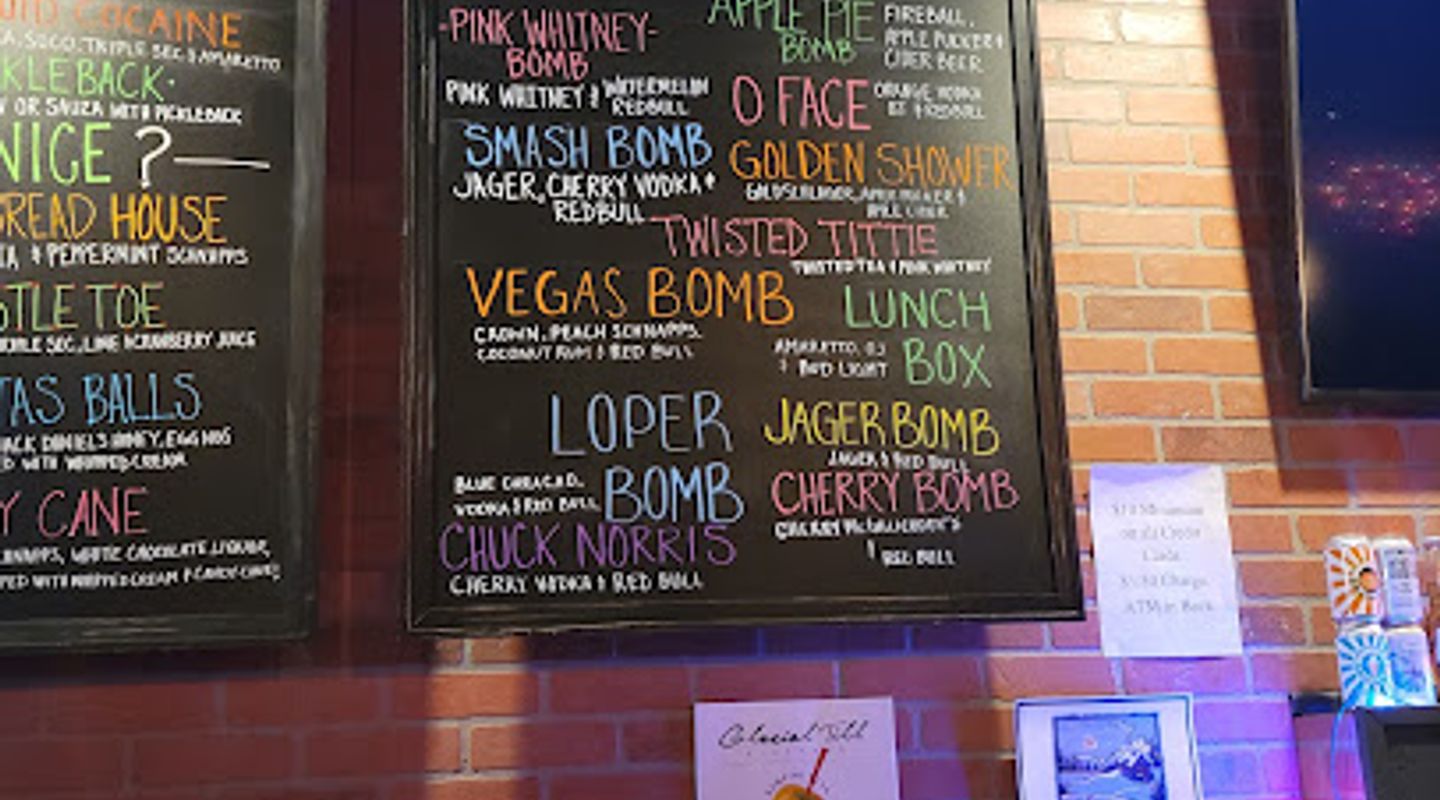 COCAINE
SOCO, TRIPLE SEC, & AMARETTO
KLEBACK
OR SAUZA WITH PICKLEBACK
NICE ?
READ HOUSE
& PEPPERMINT SCHNAPPS
TLE TOE
SEC, LIME & CRANBERRY JUICE
TAS BALLS
JACK DANIEL'S HONEY, EGG NOG
WITH WHIPPED CREAM
Y CANE
WHITE CHOCOLATE LIQUOR,
PED WITH WHIPPED CREAM & CANDY CANE
-PINK WHITNEY-
BOMB
PINK WHITNEY & WATERMELON
REDBULL
SMASH BOMB
JAGER, CHERRY VODKA &
REDBULL
VEGAS BOMB
CROWN, PEACH SCHNAPPS,
COCONUT RUM & RED BULL
LOPER
BOMB
BLUE CURACAO,
VODKA & RED BULL
CHUCK NORRIS
CHERRY VODKA & RED BULL
APPLE PIE
BOMB
FIREBALL,
APPLE PUCKER &
CIDER BEER
O FACE
ORANGE VODKA
& REDBULL
GOLDEN SHOWER
TWISTED TITTIE
TWISTED TEA & PINK WHITNEY
LUNCH
BOX
AMARETTO, OJ
& BUD LIGHT
JAGER BOMB
JAGER & RED BULL
CHERRY BOMB
CHERRY
&
RED BULL
Credit
Charge
ATM in Back
Colonial